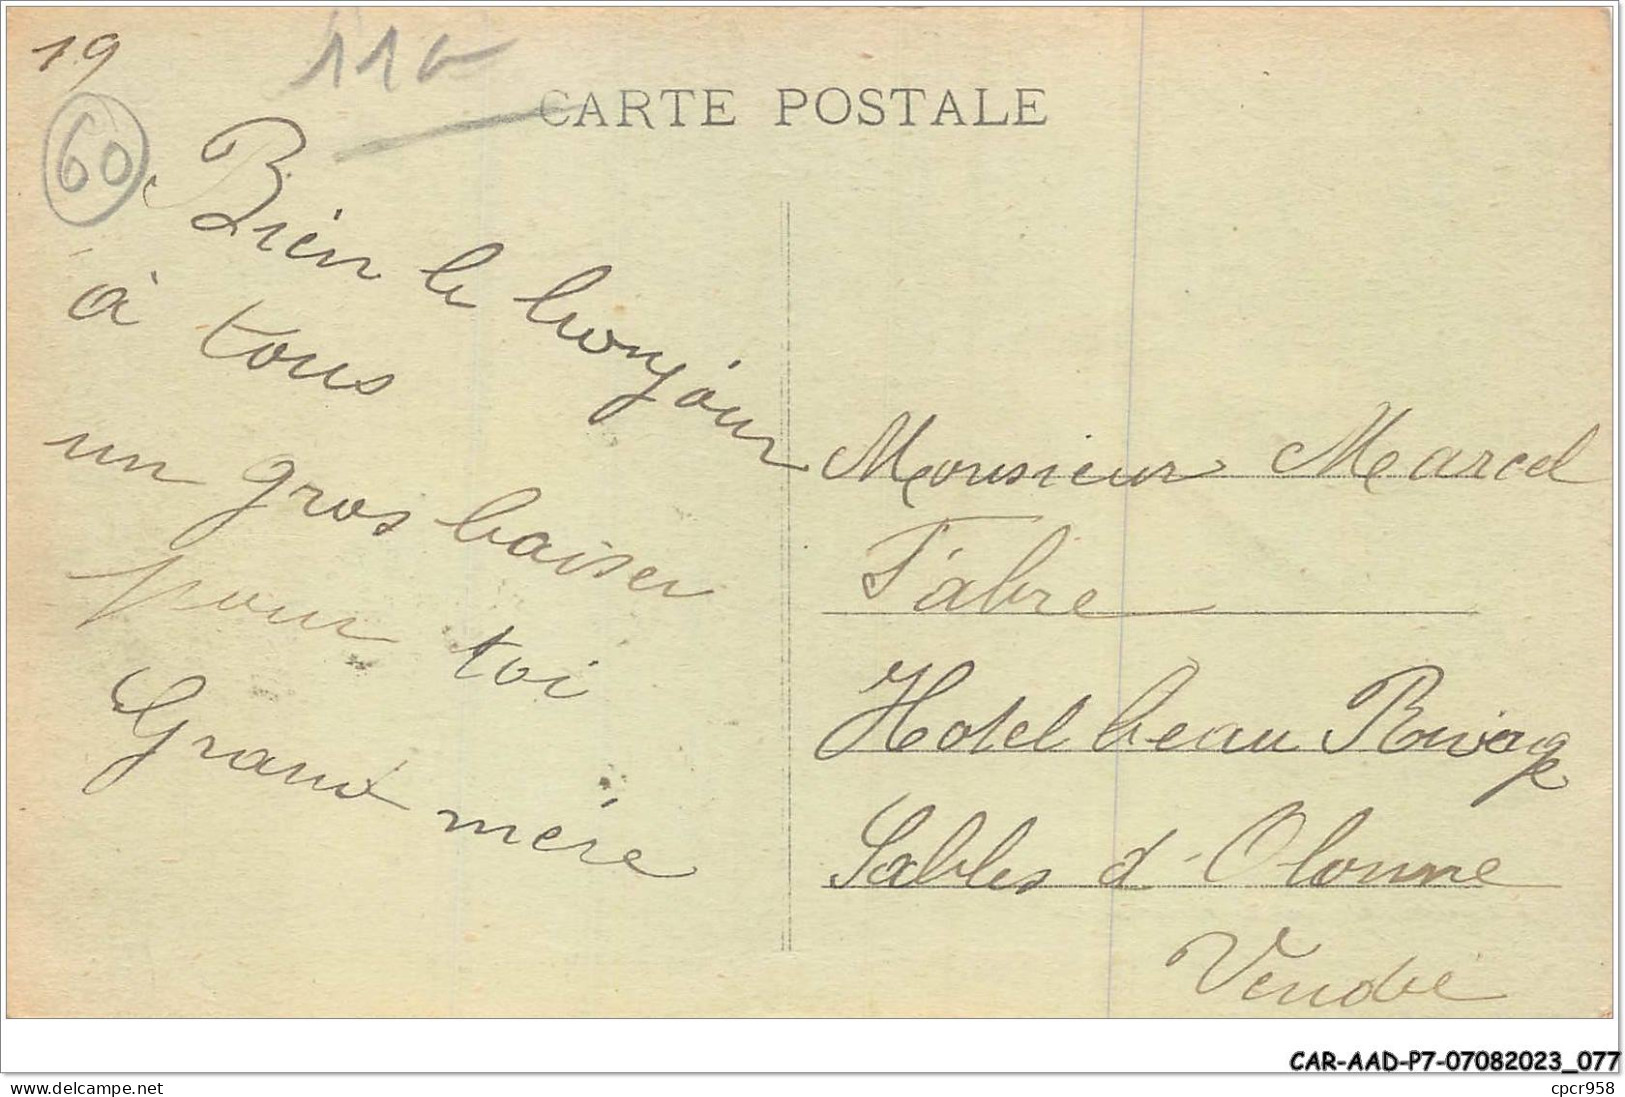 19
110
60
CARTE POSTALE
Bien le bonjour
à tous
un gros baiser
pour toi
Grand mère
Monsieur Marcel
Fabre
Hotel beau Rivage
Sables d'Olonne
Vendée
CAR-AAD-P7-07082023_077
www.delcampe.net
cpcr958